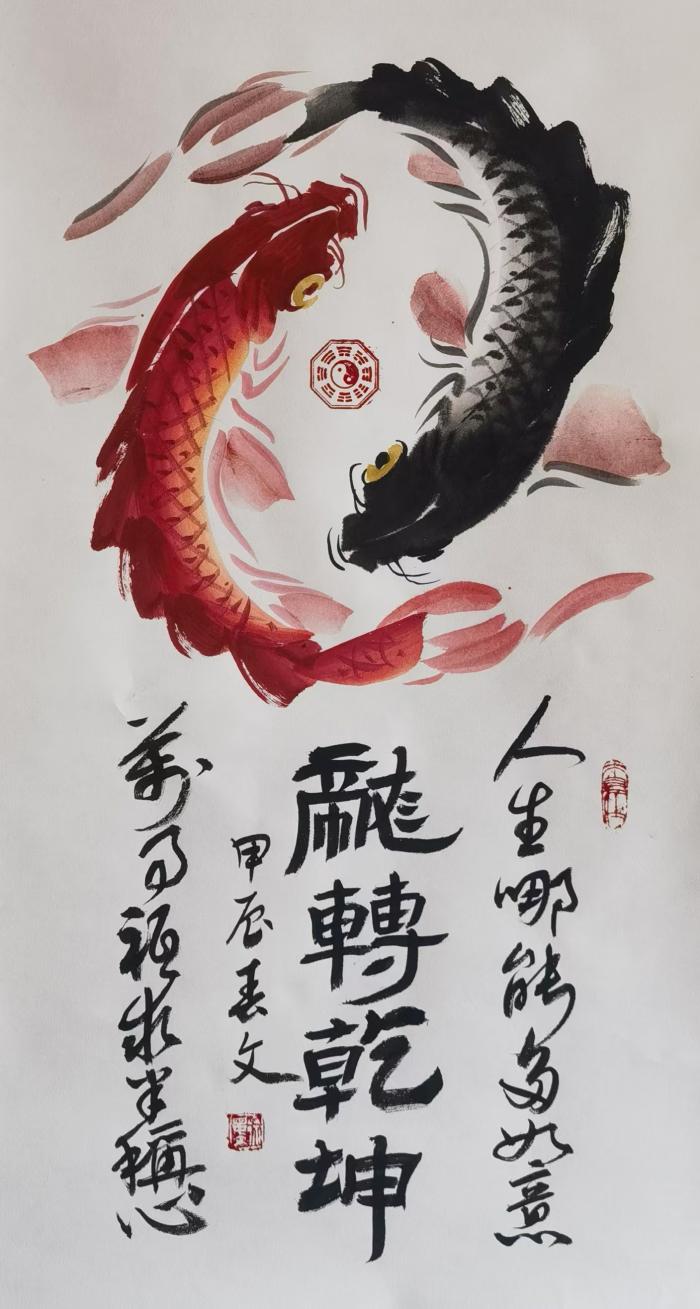 人生哪能多如意
龍轉乾坤
甲辰春文
萬事祗求半稱心